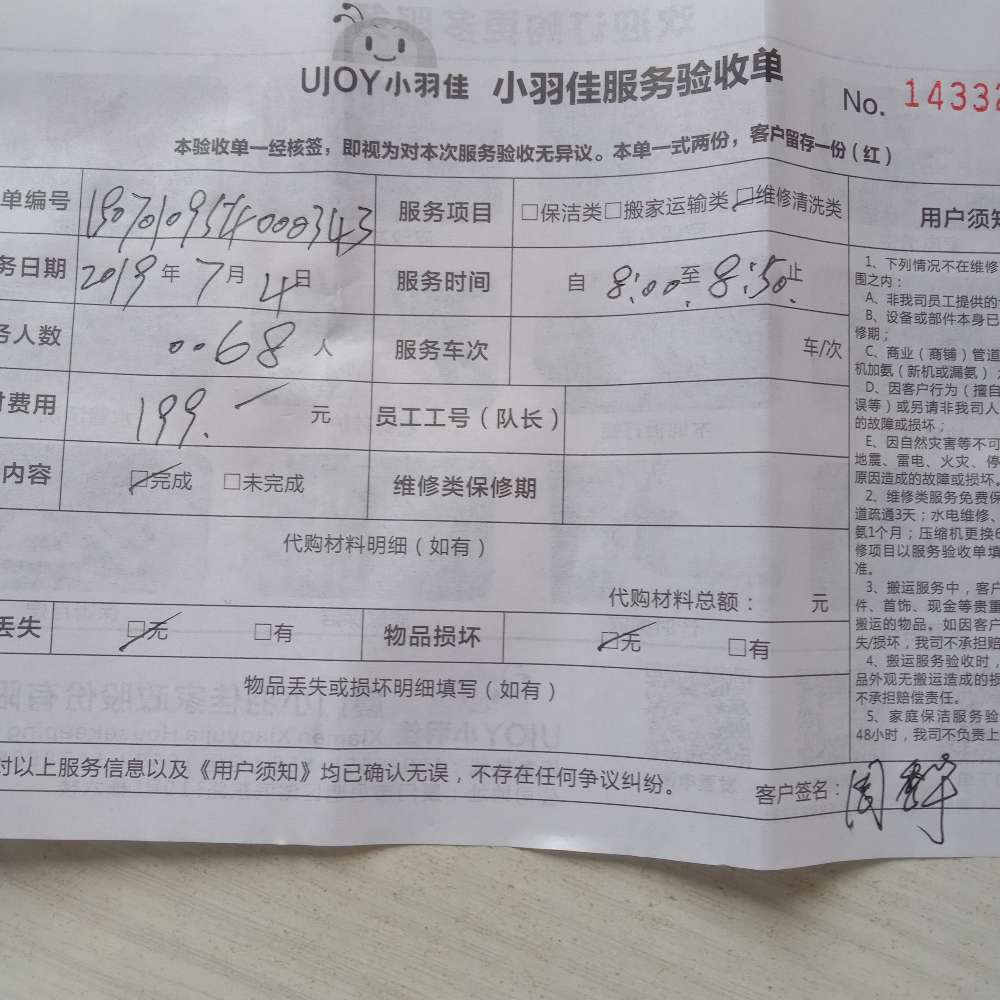 UJOY小羽佳 小羽佳服务验收单
No. 14332
本验收单一经核签，即视为对本次服务验收无异议。本单一式两份，客户留存一份（红）
单编号 服务项目 □保洁类□搬家运输类□维修清洗类
务日期 2019年7月4日 服务时间 自8:00至8:50止
务人数 ..68人 服务车次 车/次
付费用 199.一元 员工工号（队长）
内容 □完成 □未完成 维修类保修期
代购材料明细（如有）
代购材料总额： 元
丢失 □无 □有 物品损坏 □无 □有
物品丢失或损坏明细填写（如有）
对以上服务信息以及《用户须知》均已确认无误，不存在任何争议纠纷。
客户签名：周
用户须知
1、下列情况不在维修
围之内：
A、非我司员工提供的
B、设备或部件本身已
修期；
C、商业（商铺）管道
机加氨（新机或漏氨）
D、因客户行为（擅自
误等）或另请非我司人
的故障或损坏；
E、因自然灾害等不可
地震、雷电、火灾、停
原因造成的故障或损坏。
2、维修类服务免费保
道疏通3天；水电维修、
氨1个月；压缩机更换6
修项目以服务验收单填
准。
3、搬运服务中，客户
件、首饰、现金等贵重
搬运的物品。如因客户
失/损坏，我司不承担赔
4、搬运服务验收时，
品外观无搬运造成的损
不承担赔偿责任。
5、家庭保洁服务验
48小时，我司不负责上